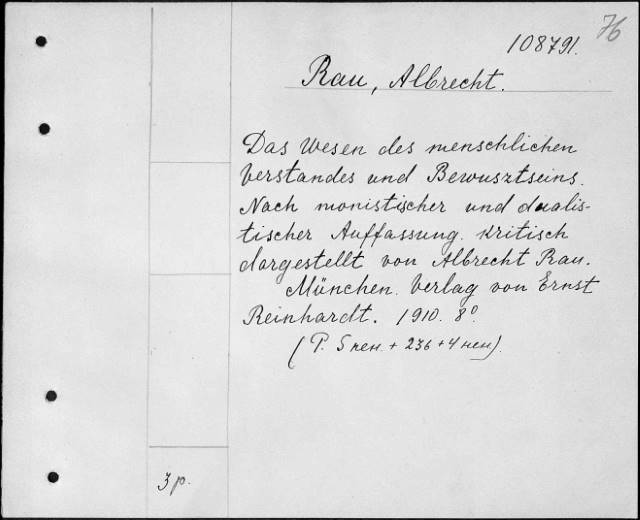 76
108791.
Rau, Albrecht.
Das Wesen des menschlichen
Verstandes und Bewusztseins.
Nach monistischer und dualis-
tischer Auffassung kritisch
dargestellt von Albrecht Rau.
München. Verlag von Ernst
Reinhardt. 1910. 8°
(P. 5 нен. + 236 + 4 нен).
3 р.